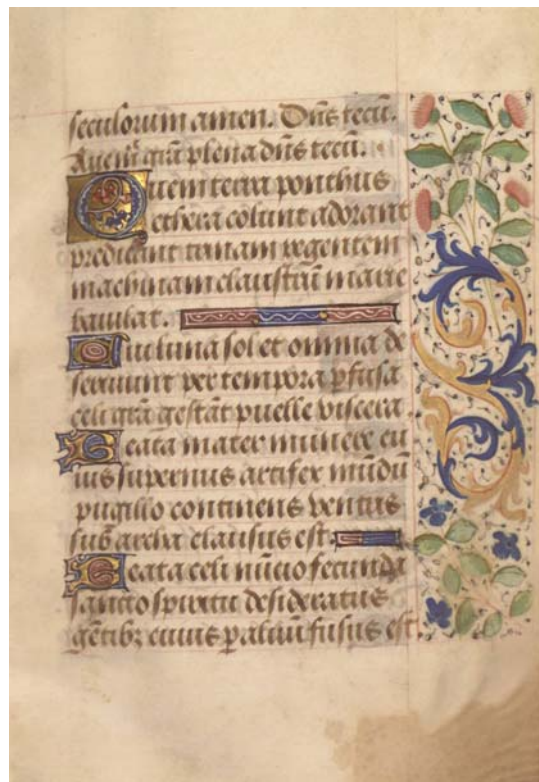 seculorum amen. Dñs tecũ.
Aue mã grã plena dñs tecũ.
Quem terra ponthus
ethera colunt adorant
predicant trinam regentem
machinam claustrũ marie
baiulat.
Cui luna sol et omnia de
seruiunt per tempora pfusa
celi grã gestãt puelle viscera
Beata mater munere cu
ius supernus artifex mũdũ
pugillo continens ventris
sub archa clausus est.
Beata celi nũcio fecunda
sancto spiritu desideratus
gẽtibȝ cuius p aluũ fusus est.